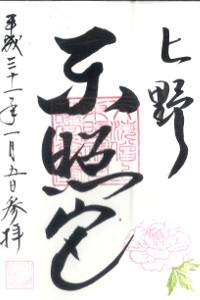 上野
東照宮
平成三十一年一月五日参拝